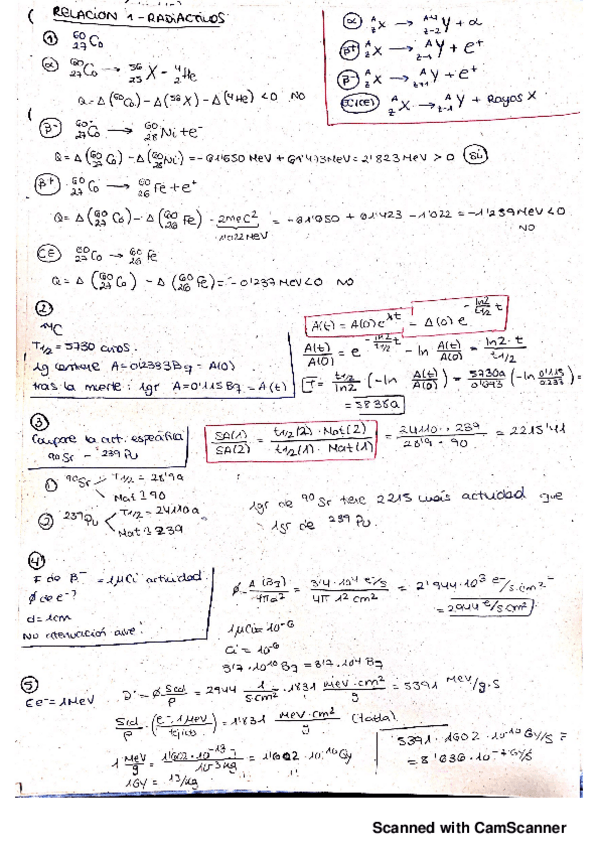 RELACION 1 - RADIACTIVOS
① ⁶⁰₂₇Co
ⓐ ⁶⁰₂₇Co → ⁵⁶₂₅X - ⁴₂He
Q = Δ(⁶⁰Co) - Δ(⁵⁶X) - Δ(⁴He) < 0 NO
α) ᴬ_ZX → ᴬ⁻⁴_Z-2Y + α
β+ ᴬ_ZX → ᴬ_Z-1Y + e⁺
β- ᴬ_ZX → ᴬ_Z+1Y + e⁺
(CE) ᴬ_ZX → ᴬ_Z-1Y + Rayos X
β- ⁶⁰₂₇Co → ⁶⁰₂₈Ni + e-
Q = Δ(⁶⁰₂₇Co) - Δ(⁶⁰₂₈Ni) = -61'650 MeV + 61'473 MeV = 2'823 MeV > 0 Sí
β+ ⁶⁰₂₇Co → ⁶⁰₂₆Fe + e⁺
Q = Δ(⁶⁰₂₇Co) - Δ(⁶⁰₂₆Fe) - 2meC² = -61'650 + 61'423 - 1'022 = -1'259 MeV < 0
1'022 MeV
NO
CE ⁶⁰₂₇Co → ⁶⁰₂₆Fe
Q = Δ(⁶⁰₂₇Co) - Δ(⁶⁰₂₆Fe) = -0'237 MeV < 0 NO
②
¹⁴C
T1/2 = 5730 años.
1g contiene A = 0'2383 Bq = A(0)
tras la muerte: 1gr A = 0'115 Bq = A(t)
A(t) = A(0) e^λt - Δ(0) e^-ln2/t1/2 t
A(t)/A(0) = e^-ln2/t1/2 t - ln A(t)/A(0) = ln2·t/t1/2
T = t1/2/ln2 (-ln A(t)/A(0)) = 5730a/0'693 (-ln 0'115/0'233) =
= 5836a
③
Compare la act. específica
⁹⁰Sr - ²³⁹Pu
① ⁹⁰Sr T1/2 = 28'9a
Mat = 90
② ²³⁹Pu T1/2 = 24110a
Mat = 239
SA(1)/SA(2) = t1/2(2)·Mat(2)/t1/2(1)·Mat(1) = 24110·239/28'9·90 = 2215'41
1gr de ⁹⁰Sr tiene 2215 más actividad que
1gr de ²³⁹Pu.
④
F de β- = 1μCi actividad.
ϕ de e-?
d = 1cm
No atenuación aire
ϕ = A(Bq)/4πa² = 3'7·10⁴ e-/s / 4π 1² cm² = 2'944·10³ e-/s·cm²
= 2944 e-/s·cm²
1μCi = 10⁻⁶
Ci = 10⁻⁶
3'7·10¹⁰ Bq = 3'7·10⁴ Bq
⑤
Ee- = 1MeV
Ḋ = ϕ Scol/ρ = 2944 1/s·cm² · 1'831 MeV·cm²/g = 5391 MeV/g·s
Scol/ρ (e- 1MeV/tejido) = 1'831 MeV·cm²/g (tabla)
1 MeV/g = 1'602·10⁻¹³ J/10⁻³ kg = 1'602·10⁻¹⁰ Gy
1Gy = 1J/kg
5391·1'602·10⁻¹⁰ Gy/s =
= 8'636·10⁻⁷ Gy/s
Scanned with CamScanner